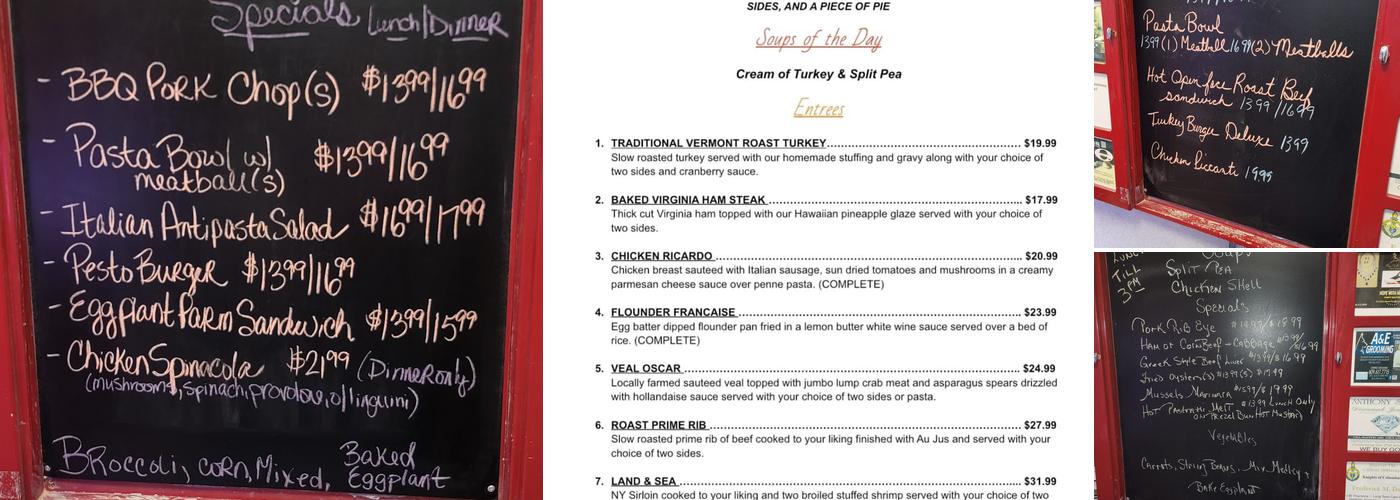 Specials Lunch/Dinner
- BBQ Pork Chop(s) $13⁹⁹/16⁹⁹
- Pasta Bowl w/ $13⁹⁹/16⁹⁹
meatball(s)
- Italian Antipasta Salad $16⁹⁹/17⁹⁹
- Pesto Burger $13⁹⁹/16⁹⁹
- Eggplant Parm Sandwich $13⁹⁹/15⁹⁹
- Chicken Spinacola $21⁹⁹ (Dinner only)
(mushrooms, spinach, provolone, o/linguini)
Broccoli, corn, Mixed, Baked
Eggplant
SIDES, AND A PIECE OF PIE
Soups of the Day
Cream of Turkey & Split Pea
Entrees
1. TRADITIONAL VERMONT ROAST TURKEY $19.99
Slow roasted turkey served with our homemade stuffing and gravy along with your choice of
two sides and cranberry sauce.
2. BAKED VIRGINIA HAM STEAK $17.99
Thick cut Virginia ham topped with our Hawaiian pineapple glaze served with your choice of
two sides.
3. CHICKEN RICARDO $20.99
Chicken breast sauteed with Italian sausage, sun dried tomatoes and mushrooms in a creamy
parmesan cheese sauce over penne pasta. (COMPLETE)
4. FLOUNDER FRANCAISE $23.99
Egg batter dipped flounder pan fried in a lemon butter white wine sauce served over a bed of
rice. (COMPLETE)
5. VEAL OSCAR $24.99
Locally farmed sauteed veal topped with jumbo lump crab meat and asparagus spears drizzled
with hollandaise sauce served with your choice of two sides or pasta.
6. ROAST PRIME RIB $27.99
Slow roasted prime rib of beef cooked to your liking finished with Au Jus and served with your
choice of two sides.
7. LAND & SEA $31.99
NY Sirloin cooked to your liking and two broiled stuffed shrimp served with your choice of two
Pasta Bowl
13⁹⁹(1) Meatball 16⁹⁹(2) Meatballs
Hot Open face Roast Beef
sandwich 13 99/16 99
Turkey Burger Deluxe 13 99
Chicken Piccanti 19.99
LUNCH
TILL
3 PM
Soups
Split Pea
Chicken Shell
Specials
Pork Rib Eye
Ham or Corn Beef - Cabbage
$16.99
Greek Style Beef Liver $13.99/$16.99
Fried Oysters(s) $13.99(5) $17.99
Mussels Marinara $15.99/$19.99
Hot Pastrami Melt $13.99 Lunch Only
on Pretzel Bun Hot Mustard
Vegetables
Carrots, String Beans, Mix Medley
Bake Eggplant
A&E
GROOMING
ANTHONY
WE BUY GO